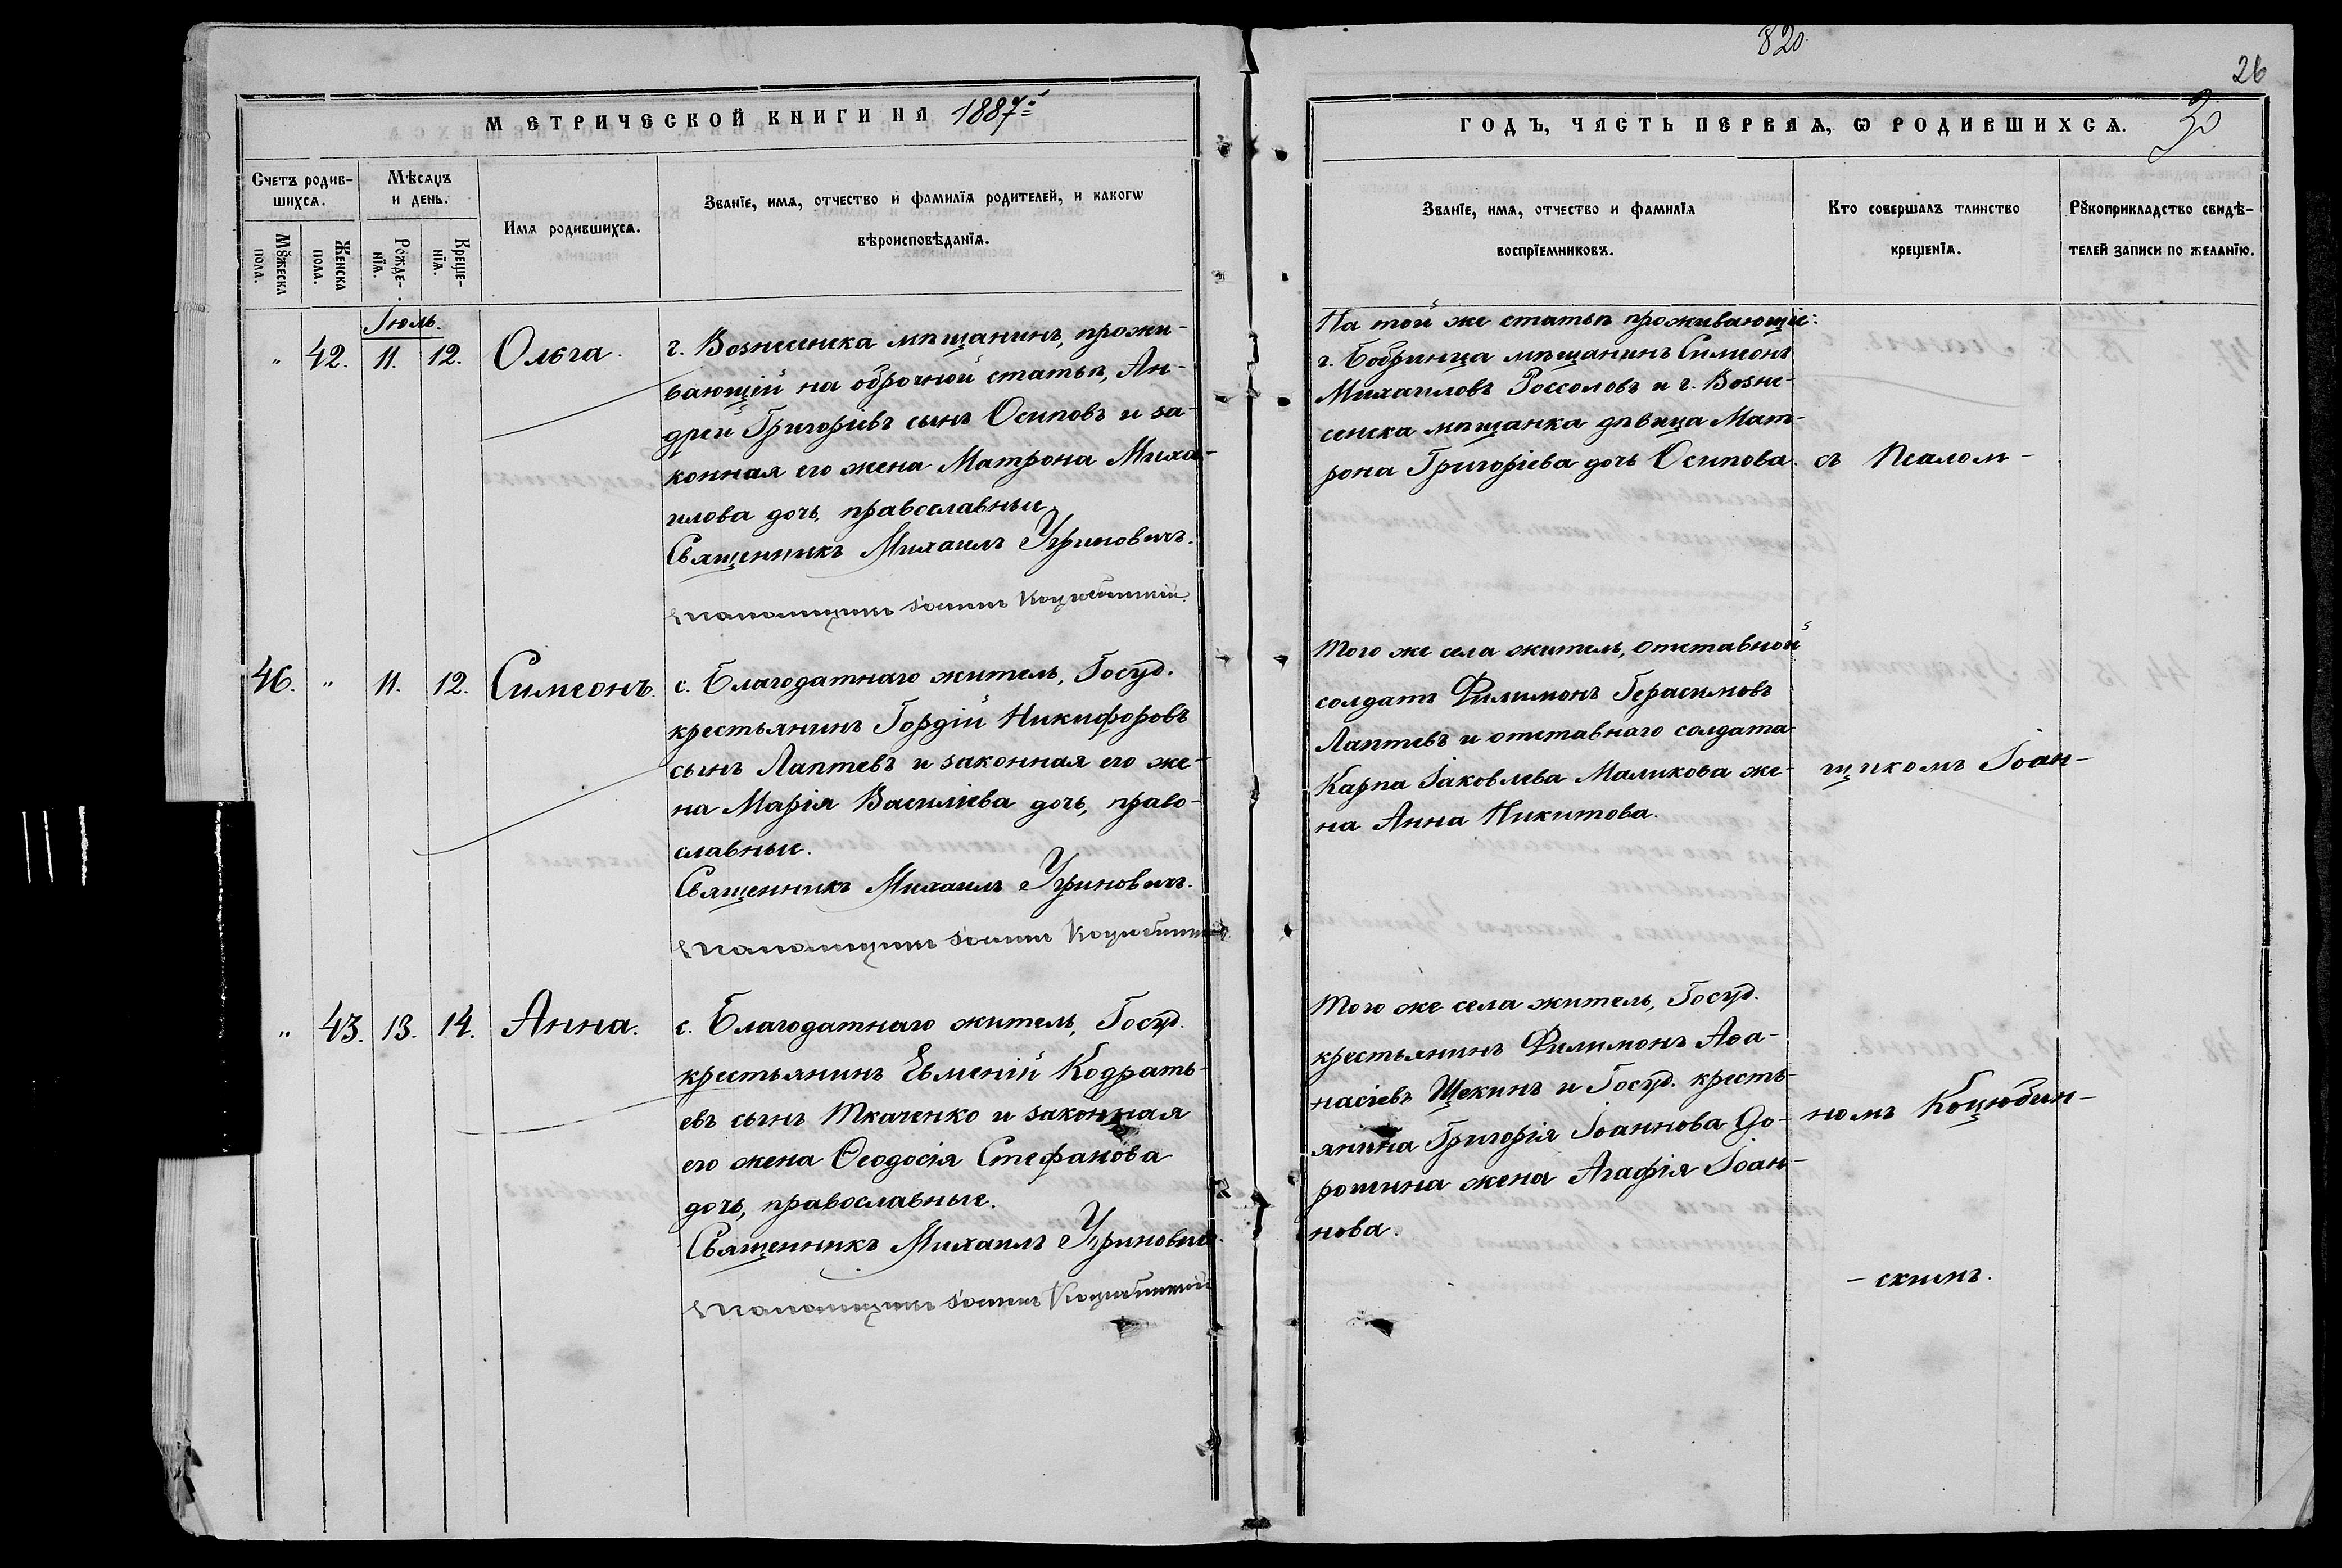 820.
26
30
МЕТРИЧЕСКОЙ КНИГИ НА 1887й
ГОДЪ, ЧАСТЬ ПЕРВАЯ, Ѡ РОДИВШИХСѦ.
Счетъ родив-
шихсѧ.
Мѣсяцъ
и день.
Мꙋжеска
пола.
Женска
пола.
Рожде-
нїѧ.
Креще-
нїѧ.
Имѧ родившихсѧ.
Званїе, имѧ, отчество и фамилїѧ родителей, и какогѡ
вѣроисповѣданїѧ.
Званїе, имѧ, отчество и фамилїѧ
воспрїемниковъ.
Кто совершалъ таинство
крещенїѧ.
Рꙋкоприкладство свидѣ-
телей записи по желанїю.
Іюль.
" 42. 11. 12. Ольга.
г. Вознесенска мѣщанинъ, прожи-
вающій на оброчной статьѣ, Ан-
дрей Григоріевъ сынъ Осиповъ и за-
конная его жена Матрона Миха-
илова дочь, православные
Священникъ Михаилъ Угриновичъ.
Псаломщикъ Іоаннъ Коцюбинскій.
На той же статьѣ проживающіе:
г. Бобринца мѣщанинъ Симеонъ
Михаиловъ Россоловъ и г. Возне-
сенска мѣщанка дѣвица Мат-
рона Григоріева дочь Осипова.
съ Псалом-
46. " 11. 12. Симеонъ.
с. Благодатнаго житель, Госуд.
крестьянинъ Гордій Никифоровъ
сынъ Лаптевъ и законная его же-
на Марія Василіева дочь, право-
славные.
Священникъ Михаилъ Угриновичъ.
Псаломщикъ Іоаннъ Коцюбинскій
Того же села житель, отставной
солдатъ Филимонъ Герасимовъ
Лаптевъ и отставнаго солдата
Карпа Іаковлева Маликова же-
на Анна Никитова.
щикомъ Іоан-
" 43. 13. 14. Анна.
с. Благодатнаго житель, Госуд.
крестьянинъ Евменій Кодрать-
евъ сынъ Ткаченко и законная
его жена Ѳеодосія Стефанова
дочь, православные.
Священникъ Михаилъ Угриновичъ.
Псаломщикъ Іоаннъ Коцюбинскій
Того же села житель, Госуд.
крестьянинъ Филимонъ Аѳа-
насіевъ Щекинъ и Госуд. кресть-
янина Григорія Іоаннова До-
рошина жена Агафія Іоан-
нова.
номъ Коцюбин-
- скимъ.